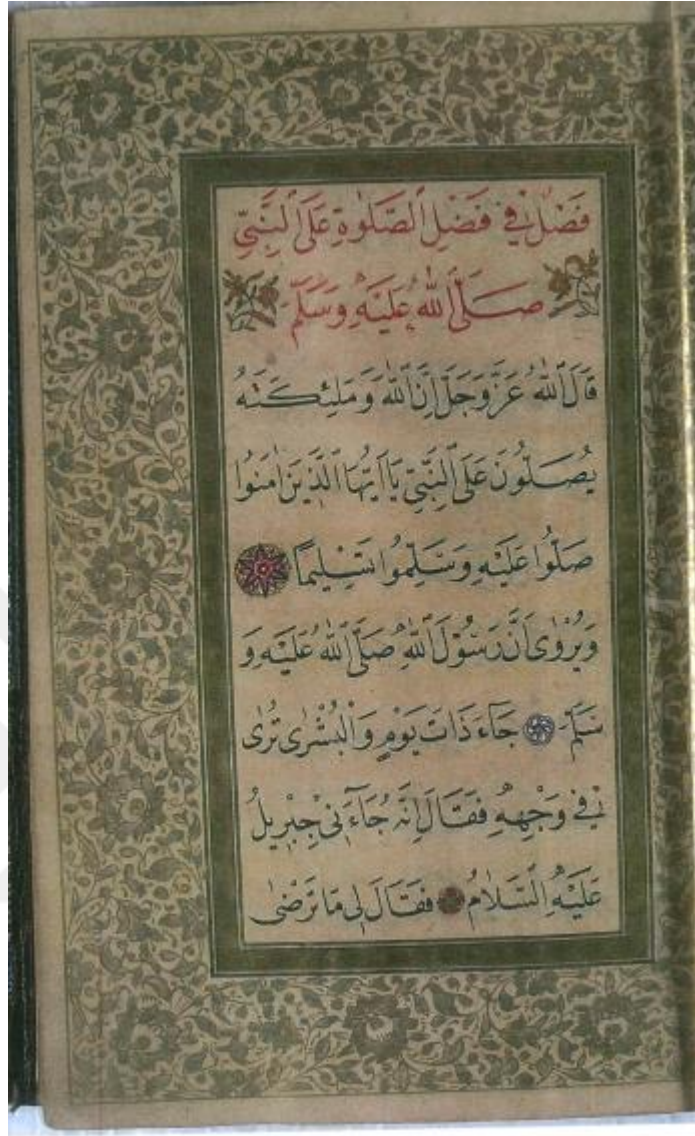 فَصْلٌ فِي فَضْلِ الصَّلٰوةِ عَلَى النَّبِيِّ
صَلَّى اللّٰهُ عَلَيْهِ وَسَلَّمَ
قَالَ اللّٰهُ عَزَّ وَجَلَّ اِنَّ اللّٰهَ وَمَلٰئِكَتَهُ
يُصَلُّونَ عَلَى النَّبِيِّ يَا اَيُّهَا الَّذِينَ اٰمَنُوا
صَلُّوا عَلَيْهِ وَسَلِّمُوا تَسْلِيمًا
وَيُرْوٰى اَنَّ رَسُولَ اللّٰهِ صَلَّى اللّٰهُ عَلَيْهِ وَ
سَلَّمَ جَاءَ ذَاتَ يَوْمٍ وَالْبُشْرٰى تُرٰى
فِي وَجْهِهِ فَقَالَ اِنَّهُ جَاءَنِي جِبْرِيلُ
عَلَيْهِ السَّلَامُ فَقَالَ لِي مَا تَرْضٰى